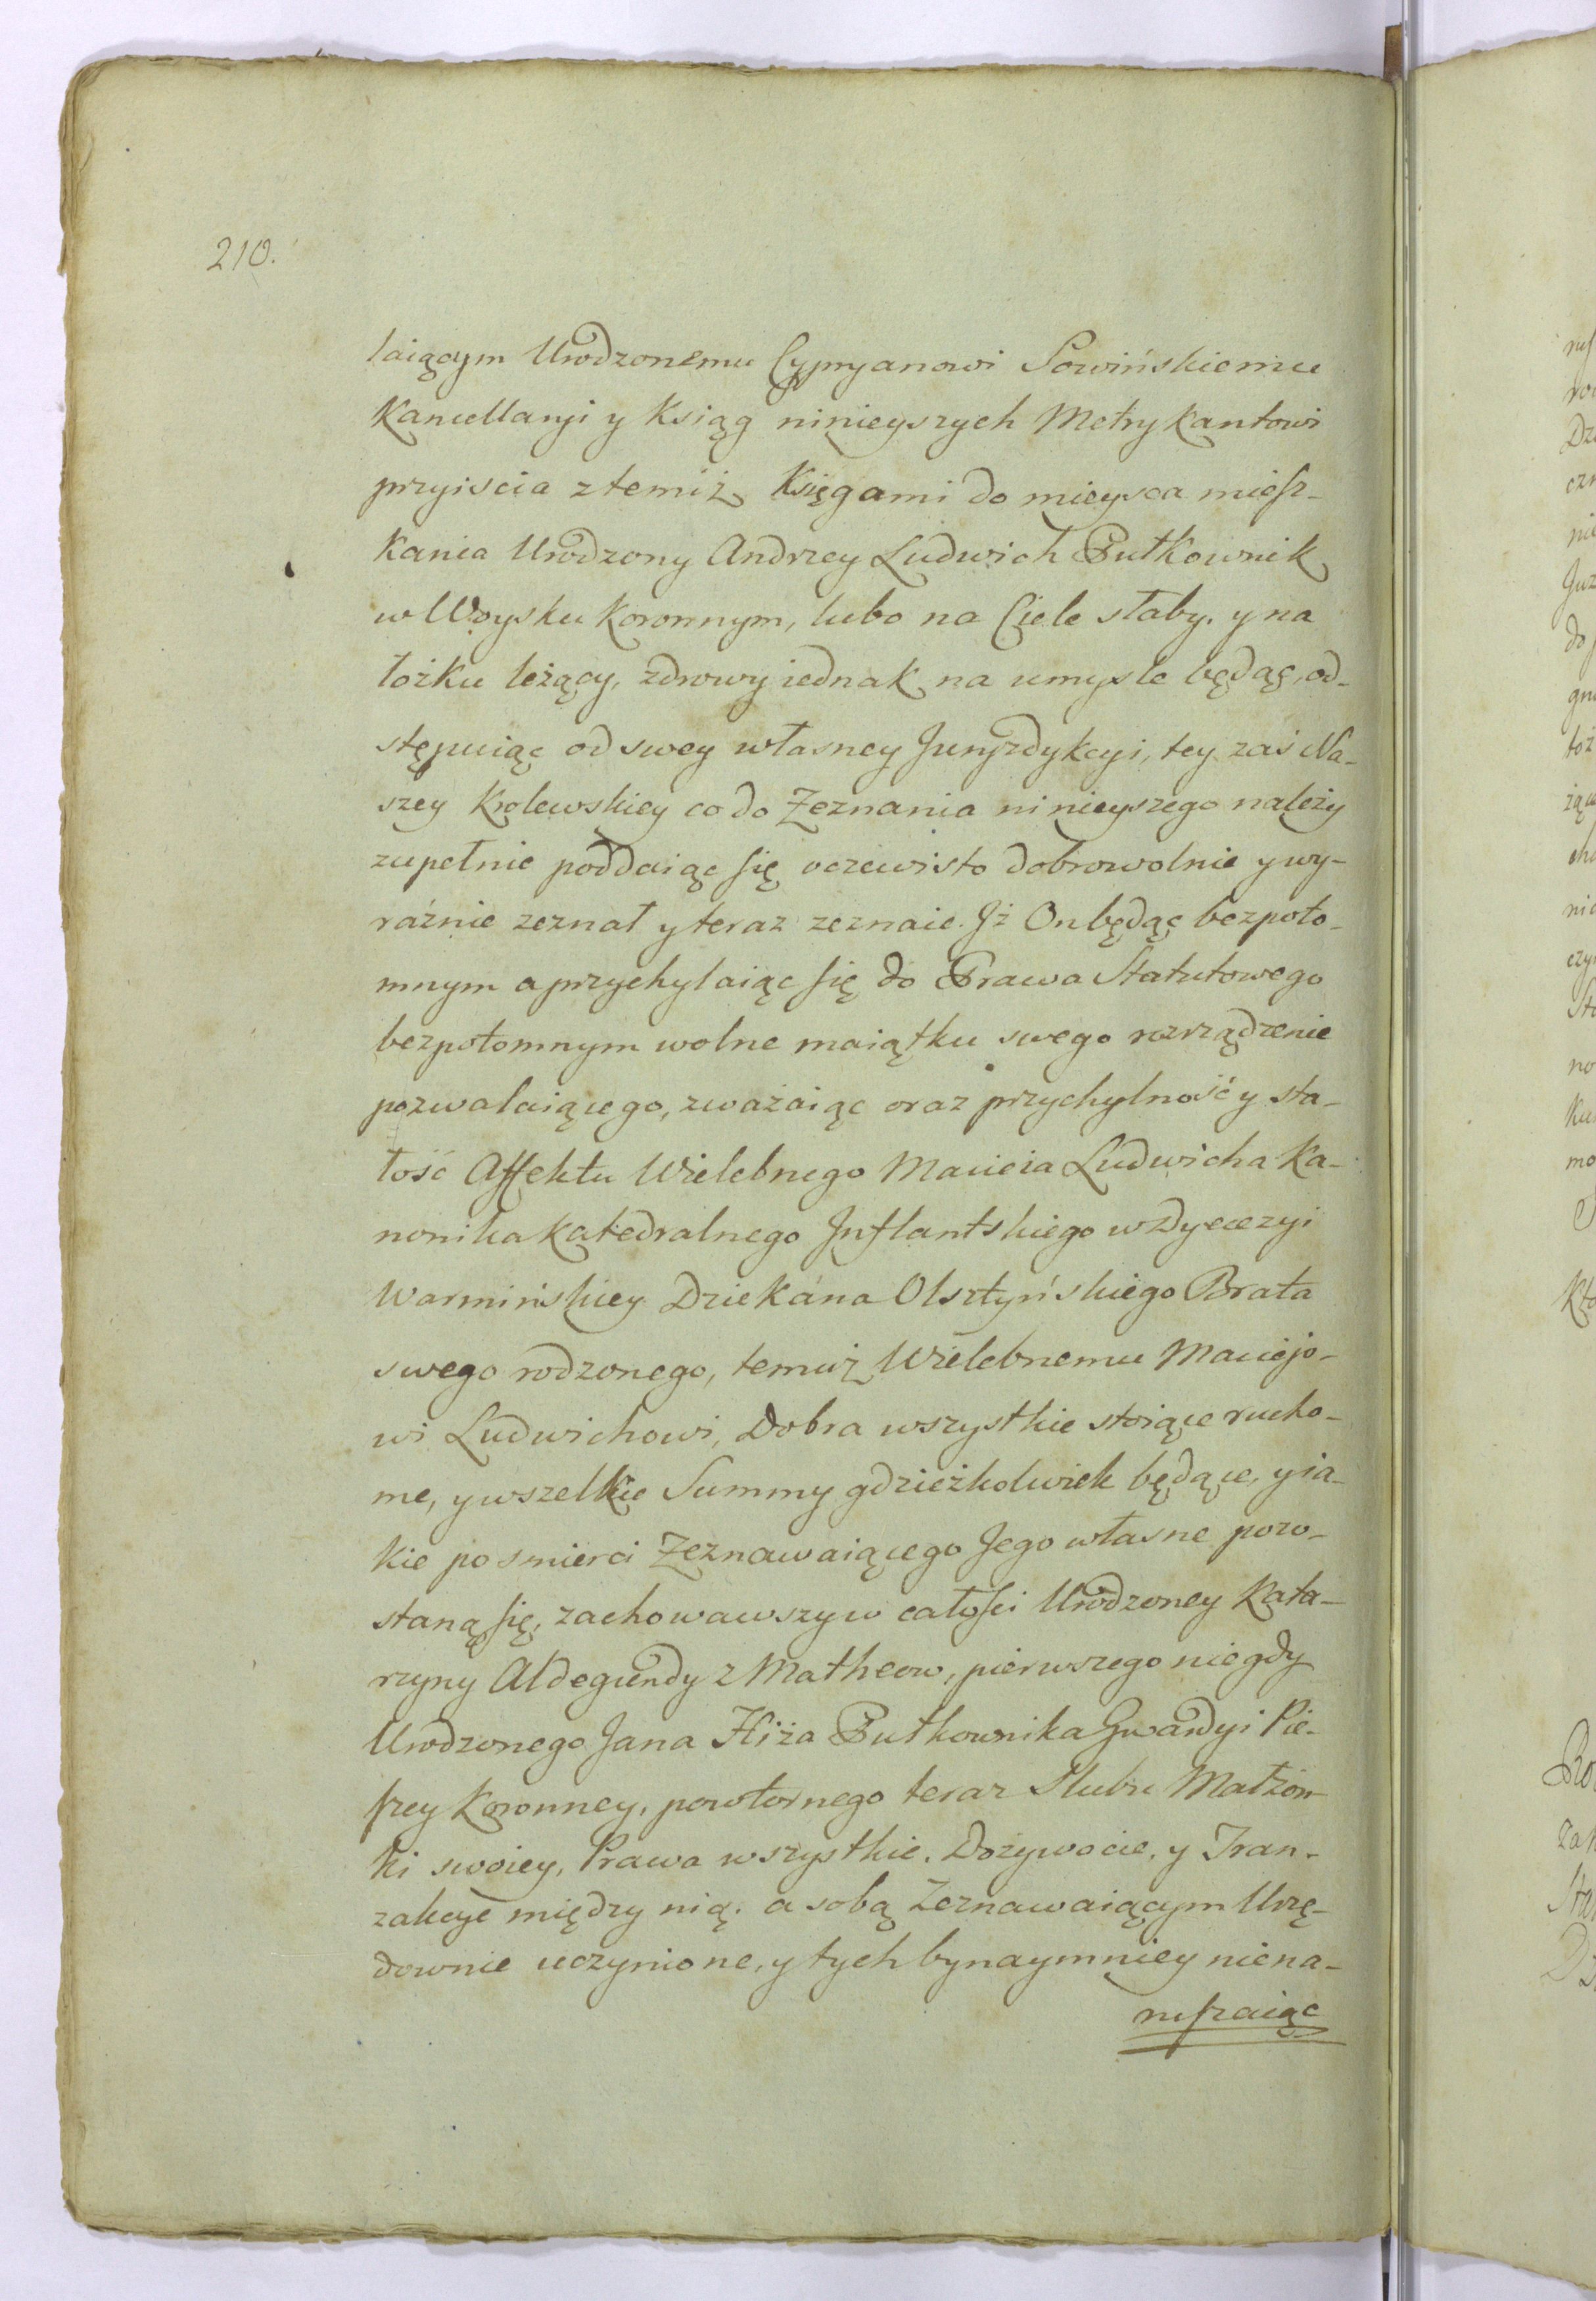 210.
laiącym Urodzonemu Cypryanowi Sowińskiemu
Kancellaryi y Ksiąg ninieyszych Metrykantowi
przyiscia z temiż Księgami do mieysca miesz-
kania Urodzony Andrzey Ludwich Pułkownik
w Woysku Koronnym, lubo na Ciele słaby, y na
łożku leżący, zdrowy iednak na umysle będąc, od-
stępuiąc od swey własney Juryzdykcyi, tey zaś Na-
szey Krolewskiey co do Zeznania ninieyszego należy
zupełnie poddaiąc się oczewisto dobrowolnie y wy-
raźnie zeznał y teraz zeznaie. Jż On będąc bezpoto-
mnym a przychylaiąc się do Prawa Statutowego
bezpotomnym wolne maiątku swego rozrządzenie
pozwalaiącego, zważaiąc oraz przychylność y sta-
łość Affektu Wielebnego Macieia Ludwicha Ka-
nonika Katedralnego Jnflantskiego w Dyecezyi
Warmińskiey Dziekana Olsztyńskiego Brata
swego rodzonego, temuż Wielebnemu Maciejo-
wi Ludwichowi, Dobra wszystkie stoiące rucho-
me, y wszelkie Summy gdzieżkolwiek będące, y ia-
kie po smierci Zeznawaiącego Jego własne pozo-
staną się, zachowawszy w całości Urodzoney Kata-
rzyny Aldegundy z Matheow, pierwszego niegdy
Urodzonego Jana Hiża Pułkownika Gwardyi Pie-
szey Koronney, powtornego teraz Slubu Małżon-
ki swoiey, Prawa wszystkie, Dożywocie, y Tran-
zakcye między nią, a sobą Zeznawaiącym Urzę-
downie uczynione, y tych bynaymniey niena-
ruszaiąc